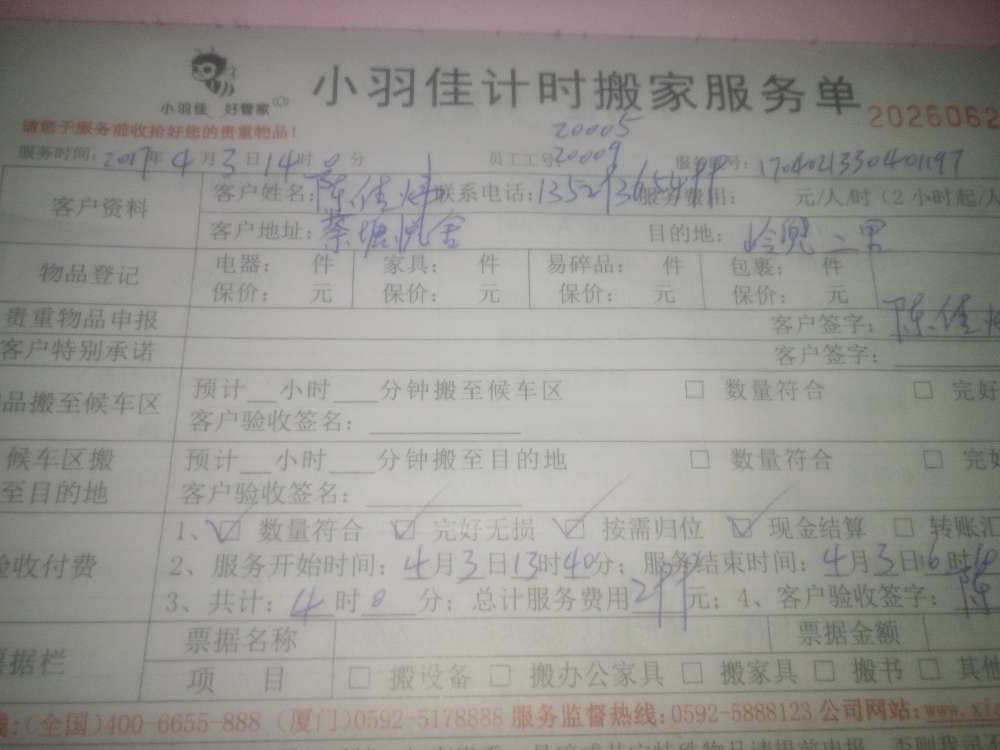 小羽佳 好管家
小羽佳计时搬家服务单
2026062
请您于服务前收拾好您的贵重物品！
20005
20009
服务时间：2017年4月3日14时 分 员工工号： 服务单号：1704021330401197
客户资料
客户姓名：陈佳 联系电话： 服务费用： 元/人/时（2小时起/人
客户地址：蔡塘悦舍 目的地：岭兜二里
物品登记
电器： 件 家具： 件 易碎品： 件 包裹： 件
保价： 元 保价： 元 保价： 元 保价： 元
贵重物品申报 客户签字：陈佳
客户特别承诺 客户签字：
品搬至候车区
预计__小时___分钟搬至候车区 □ 数量符合 □ 完好
客户验收签名：
候车区搬
至目的地
预计__小时___分钟搬至目的地 □ 数量符合 □ 完好
客户验收签名：
验收付费
1、☑ 数量符合 ☑ 完好无损 ☑ 按需归位 ☑ 现金结算 □ 转账汇
2、服务开始时间：4月3日13时40分；服务结束时间：4月3日16时
3、共计：4时0分；总计服务费用 元；4、客户验收签字：陈
票据栏
票据名称 票据金额
项 目 □ 搬设备 □ 搬办公家具 □ 搬家具 □ 搬书 □ 其他
线：(全国)400-6655-888 (厦门)0592-5178888 服务监督热线：0592-5888123 公司网站：www.xi